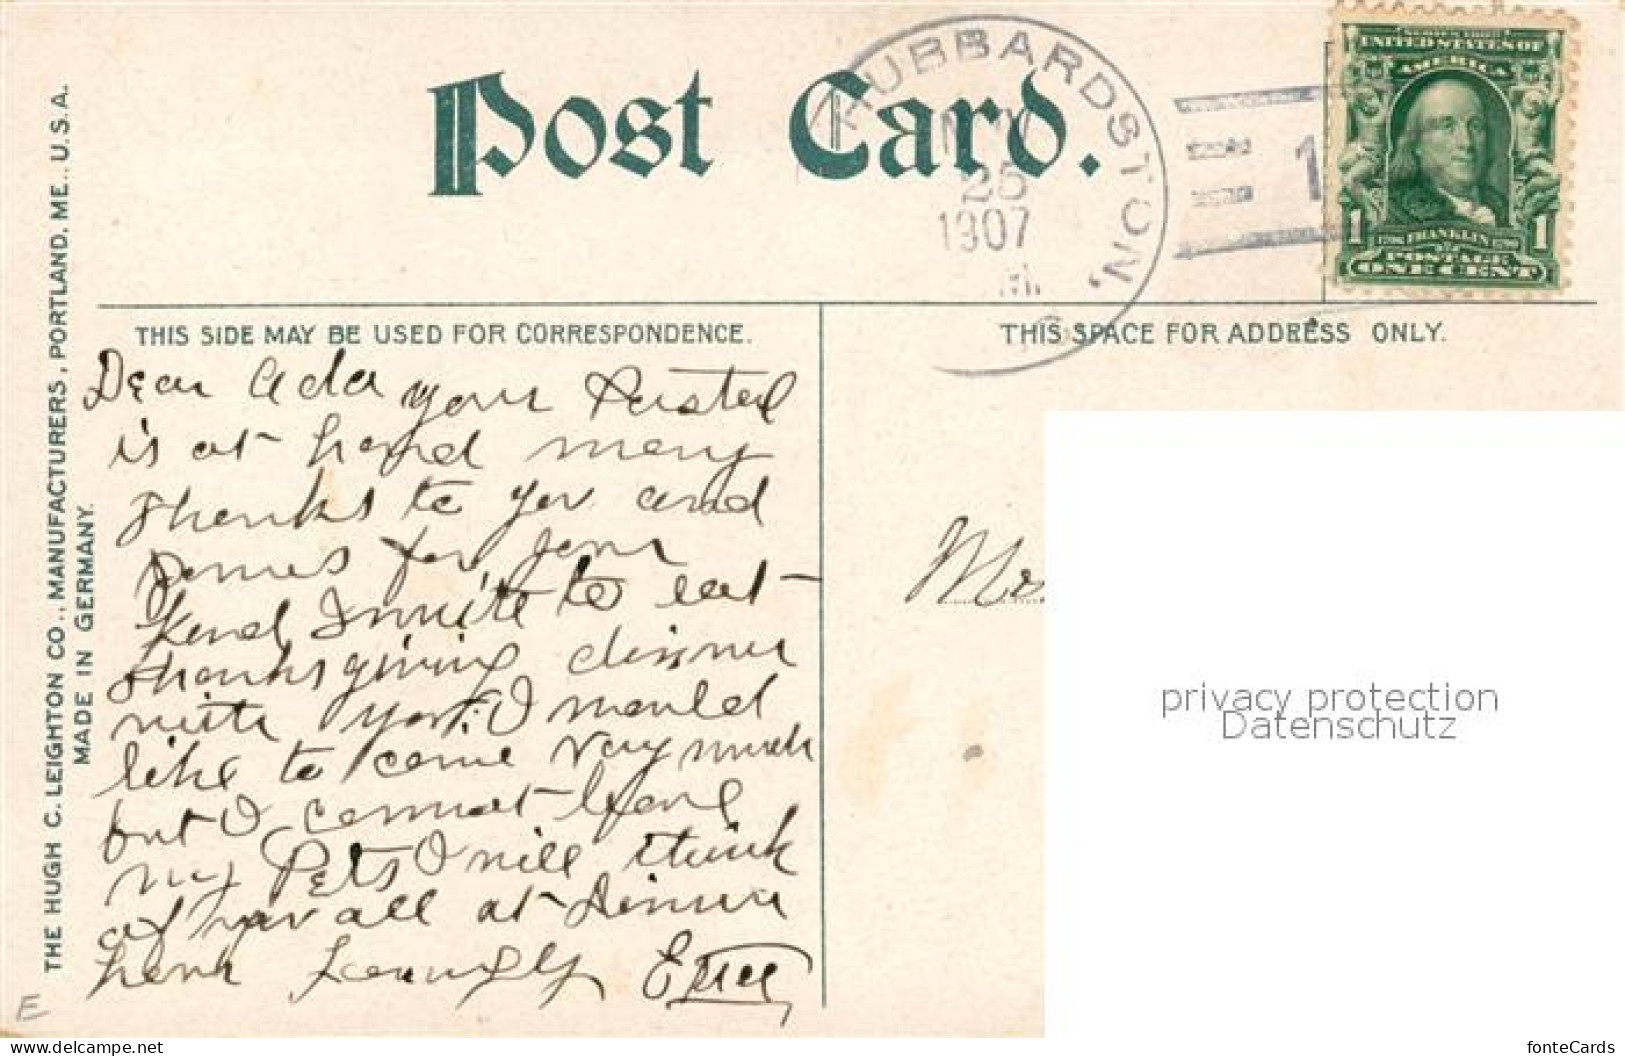 Post Card.
HUBBARDSTON,
25
1907
M.
1
SERIES 1902
UNITED STATES OF
AMERICA
1 FRANKLIN 1
POSTAGE
ONE CENT
THE HUGH C. LEIGHTON CO., MANUFACTURERS, PORTLAND, ME., U.S.A.
MADE IN GERMANY.
THIS SIDE MAY BE USED FOR CORRESPONDENCE.
THIS SPACE FOR ADDRESS ONLY.
Dear Ada your Postal
is at hand many
thanks to you and
for your
kind Invite to eat
thanksgiving dinner
with you. I would
like to come very much
but I cannot leave
my Pets I will think
of you all at Dinner
hour
privacy protection
Datenschutz
E
www.delcampe.net
fonteCards